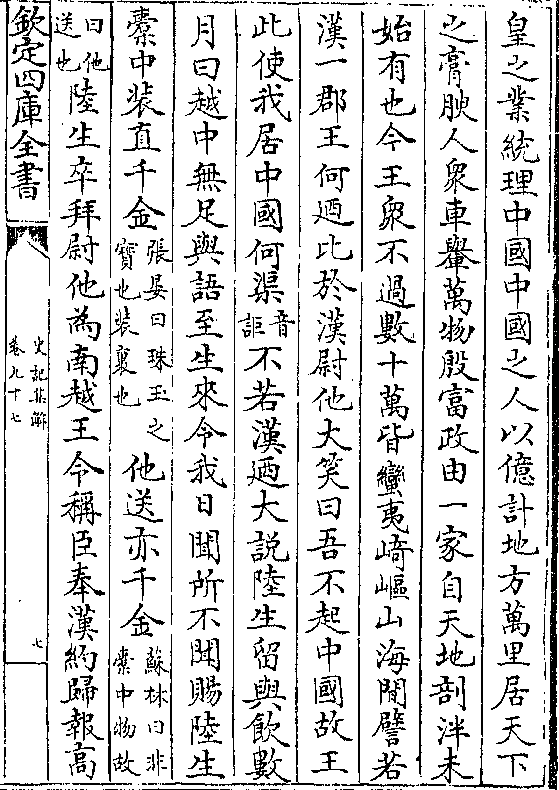 皇之業統理中國中國之人以億計地方萬里居天下
之膏腴人衆車轝萬物殷富政由一家自天地剖泮未
始有也今王衆不過數十萬皆蠻夷崎嶇山海間譬若
漢一郡王何廼比於漢尉他大笑曰吾不起中國故王
此使我居中國何渠音詎不若漢廼大說陸生留與飲數
月曰越中無足與語至生來令我日聞所不聞賜陸生
橐中裝直千金張晏曰珠玉之寶也裝裹也他送亦千金蘇林曰非橐中物故
曰他送也陸生卒拜尉他為南越王令稱臣奉漢約歸報高
欽定四庫全書
史記集解
卷九十七
七